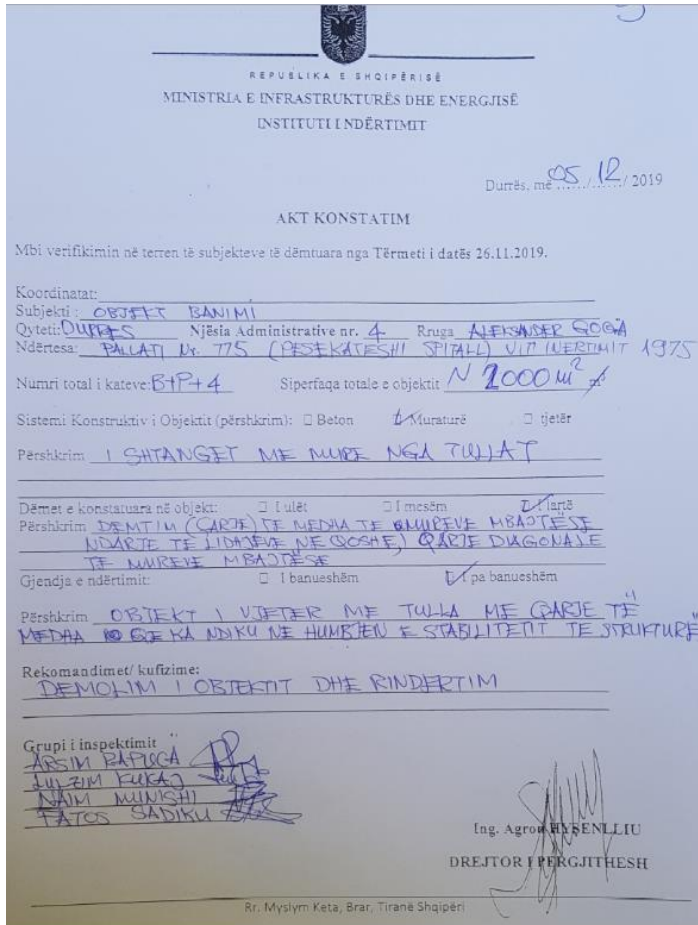 REPUBLIKA E SHQIPËRISË
MINISTRIA E INFRASTRUKTURËS DHE ENERGJISË
INSTITUTI I NDËRTIMIT
Durrës, më 05/12/2019
AKT KONSTATIM
Mbi verifikimin në terren të subjekteve të dëmtuara nga Tërmeti i datës 26.11.2019.
Koordinatat:
Subjekti: OBJEKT BANIMI
Qyteti: DURRES Njësia Administrative nr. 4 Rruga ALEKSANDER GOGA
Ndërtesa: PALLATI Nr. 775 (PESEKATESHI SPITALL) VIT INERTIMIT 1975
Numri total i kateve: B+P+4 Siperfaqa totale e objektit N 2000 m²
Sistemi Konstruktiv i Objektit (përshkrim): Beton Muraturë tjetër
Përshkrim I SHTANGET ME MURE NGA TULLAT
Dëmet e konstatuara në objekt: I ulët I mesëm I lartë
Përshkrim DEMTIM (ÇARJE) TE MEDHA TE MUREVE MBAJTËSE
NDARJE TË LIDHJEVE NE QOSHE, ÇARJE DIAGONALE
TE MUREVE MBAJTËSE
Gjendja e ndërtimit: I banueshëm I pa banueshëm
Përshkrim OBJEKT I VJETER ME TULLA ME ÇARJE TË
MEDHA QE KA NDIKU NE HUMBJEN E STABILITETIT TE STRUKTURË
Rekomandimet/ kufizime:
DEMOLIM I OBJEKTIT DHE RINDERTIM
Grupi i inspektimit
ARSIM RAPUCA
LULZIM KUKAJ
NAIM MUNISHI
FATOS SADIKU
Ing. Agron HYSENLLIU
DREJTOR I PERGJITHESH
Rr. Myslym Keta, Brar, Tiranë Shqipëri